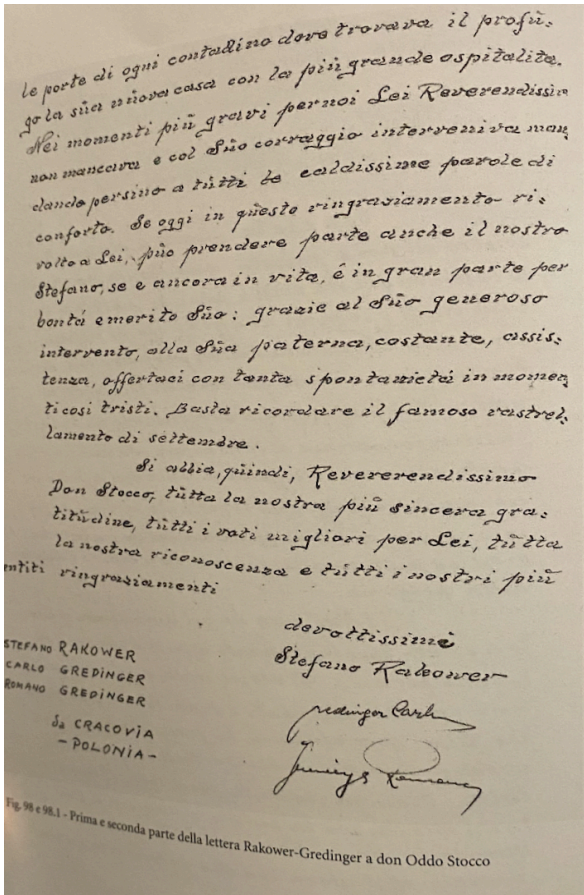 le porte di ogni contadino dove trovava il profŭ:
go la sŭa nŭova casa con la piŭ grande ospitalita.
Nei momenti piŭ gravi per noi Lei Reverendissim
non mancava e col Sŭo corraggio interveniva man
dando persino a tŭtti le caldissime parole di
conforto. Se oggi in qŭesto ringraziamento ri:
volto a Lei, pŭo prendere parte anche il nostro
Stefano, se e ancora in vita, é in gran parte per
bontá e merito Sŭo: grazie al Sŭo generoso
intervento, alla Sŭa paterna, costante, assis:
tenza, offertaci con tanta spontanietá in momen
ti cosi tristi. Basta ricordare il famoso rastrel:
lamento di settembre.
Si abbia, qŭindi, Revererendissimo
Don Stocco, tŭtta la nostra piŭ sincera gra:
titŭdine, tŭtti i voti migliori per Lei, tŭtta
la nostra riconoscenza e tŭtti i nostri piŭ
ntiti ringraziamenti
devottissimi
Stefano Rakower
STEFANO RAKOWER
CARLO GREDINGER
ROMANO GREDINGER
da CRACOVIA
- POLONIA -
Fig. 98 e 98.1 - Prima e seconda parte della lettera Rakower-Gredinger a don Oddo Stocco